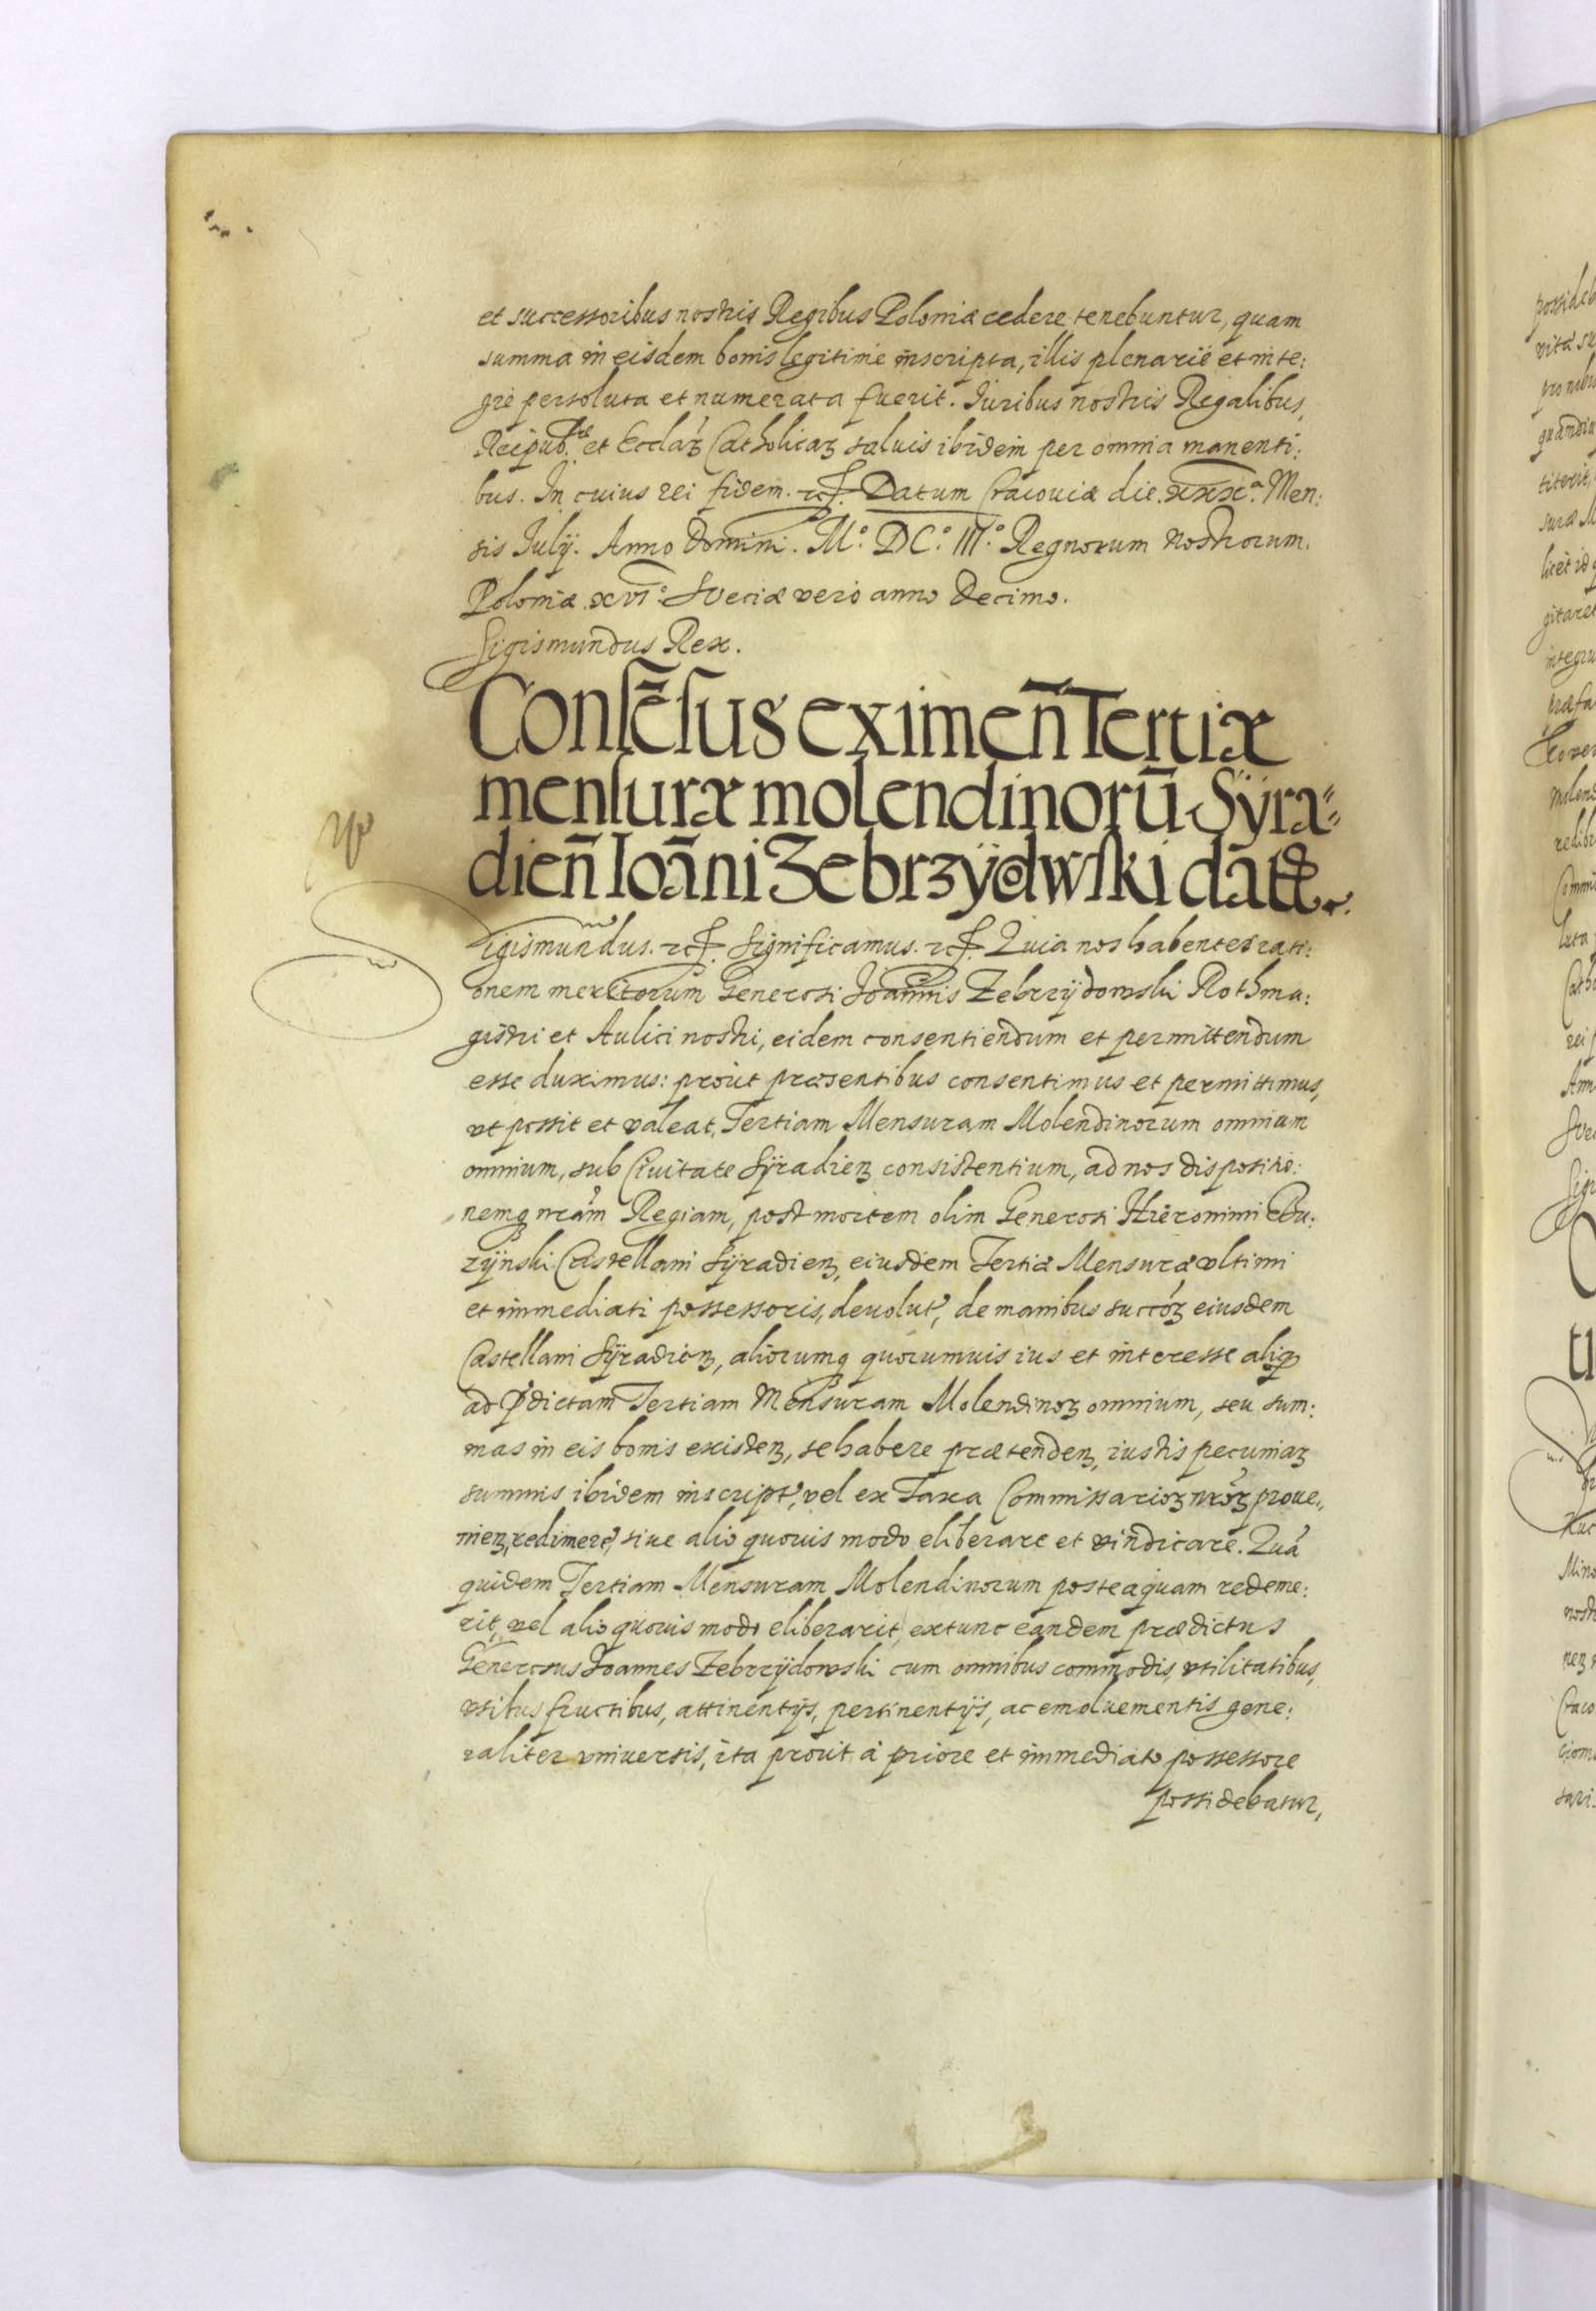 et successoribus nostris Regibus Poloniæ cedere tenebuntur, quam
summa in eisdem bonis legitime inscripta, illis plenarie et inte:
gre persoluta et numerata fuerit. Iuribus nostris Regalibus,
Reipub: et Ecclaꝝ Catholicaꝝ saluis ibidem per omnia manenti:
bus. In cuius rei fidem. etc. Datum Cracouiæ die. xxxᵃ. Men:
sis Iulij. Anno Domini. M.º DC.º III.º Regnorum nostrorum.
Poloniæ xvi.º Sueciæ vero anno Decimo.
Sigismundus Rex.
Consẽsus eximeñ Tertiæ
mensuræ molendinorũ Sÿra=
dieñ Ioãni Zebrzÿdowski dãtꝭ.
Sigismundus. etc. Significamus. etc. Quia nos habentes rati:
onem meritorum Generosi Joannis Zebrzÿdowski Rothma:
gistri et Aulici nostri, eidem consentiendum et permittendum
esse duximus: prout præsentibus consentimus et permittimus,
vt possit et valeat, Tertiam Mensuram Molendinorum omnium
omnium, sub Ciuitate Sÿradieꝝ consistentium, ad nos dispositio:
nemqꝫ nram Regiam, post mortem olim Generosi Hieronimi Bu:
zÿnski Castellani Sÿradieꝝ, eiusdem Tertiæ Mensuræ vltimi
et immediati possessoris, deuolut, de manibus succoꝝ eiusdem
Castellani Sÿradieꝝ, aliorumqꝫ quorumuis ius et interesse aliqꝫ
ad pdictam Tertiam Mensuram Molendinoꝝ omnium, seu sum:
mas in eis bonis existeꝝ, se habere prætendeꝝ, iustis pecuniaꝝ
summis ibidem inscript, vel ex Taxa Commissarioꝝ nroꝝ proue:
nieꝝ, redimere, siue alio quouis modo eliberare et vindicare. Quá
quidem Tertiam Mensuram Molendinorum posteaquam redeme:
rit, vel alio quouis modo eliberarit, extunc eandem prædictus
Generosus Joannes Zebrzÿdowski cum omnibus commodis, vtilitatibus,
vsibus fructibus, attinentijs, pertinentijs, ac emoluementis gene:
raliter vniuersis, ita prout à priore et immediato possessore
possidebatur,